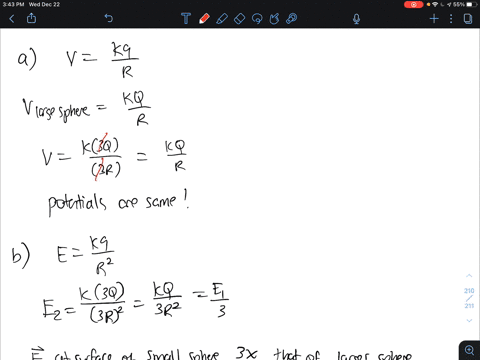 3:43 PM Wed Dec 22
55%
a) V = kq/R
V large sphere = kQ/R
V = k(3Q)/(3R) = kQ/R
potentials are same!
b) E = kq/R²
E₂ = k(3Q)/(3R)² = kQ/3R² = E₁/3
surface of small sphere 3x that of larger sphere
210/211